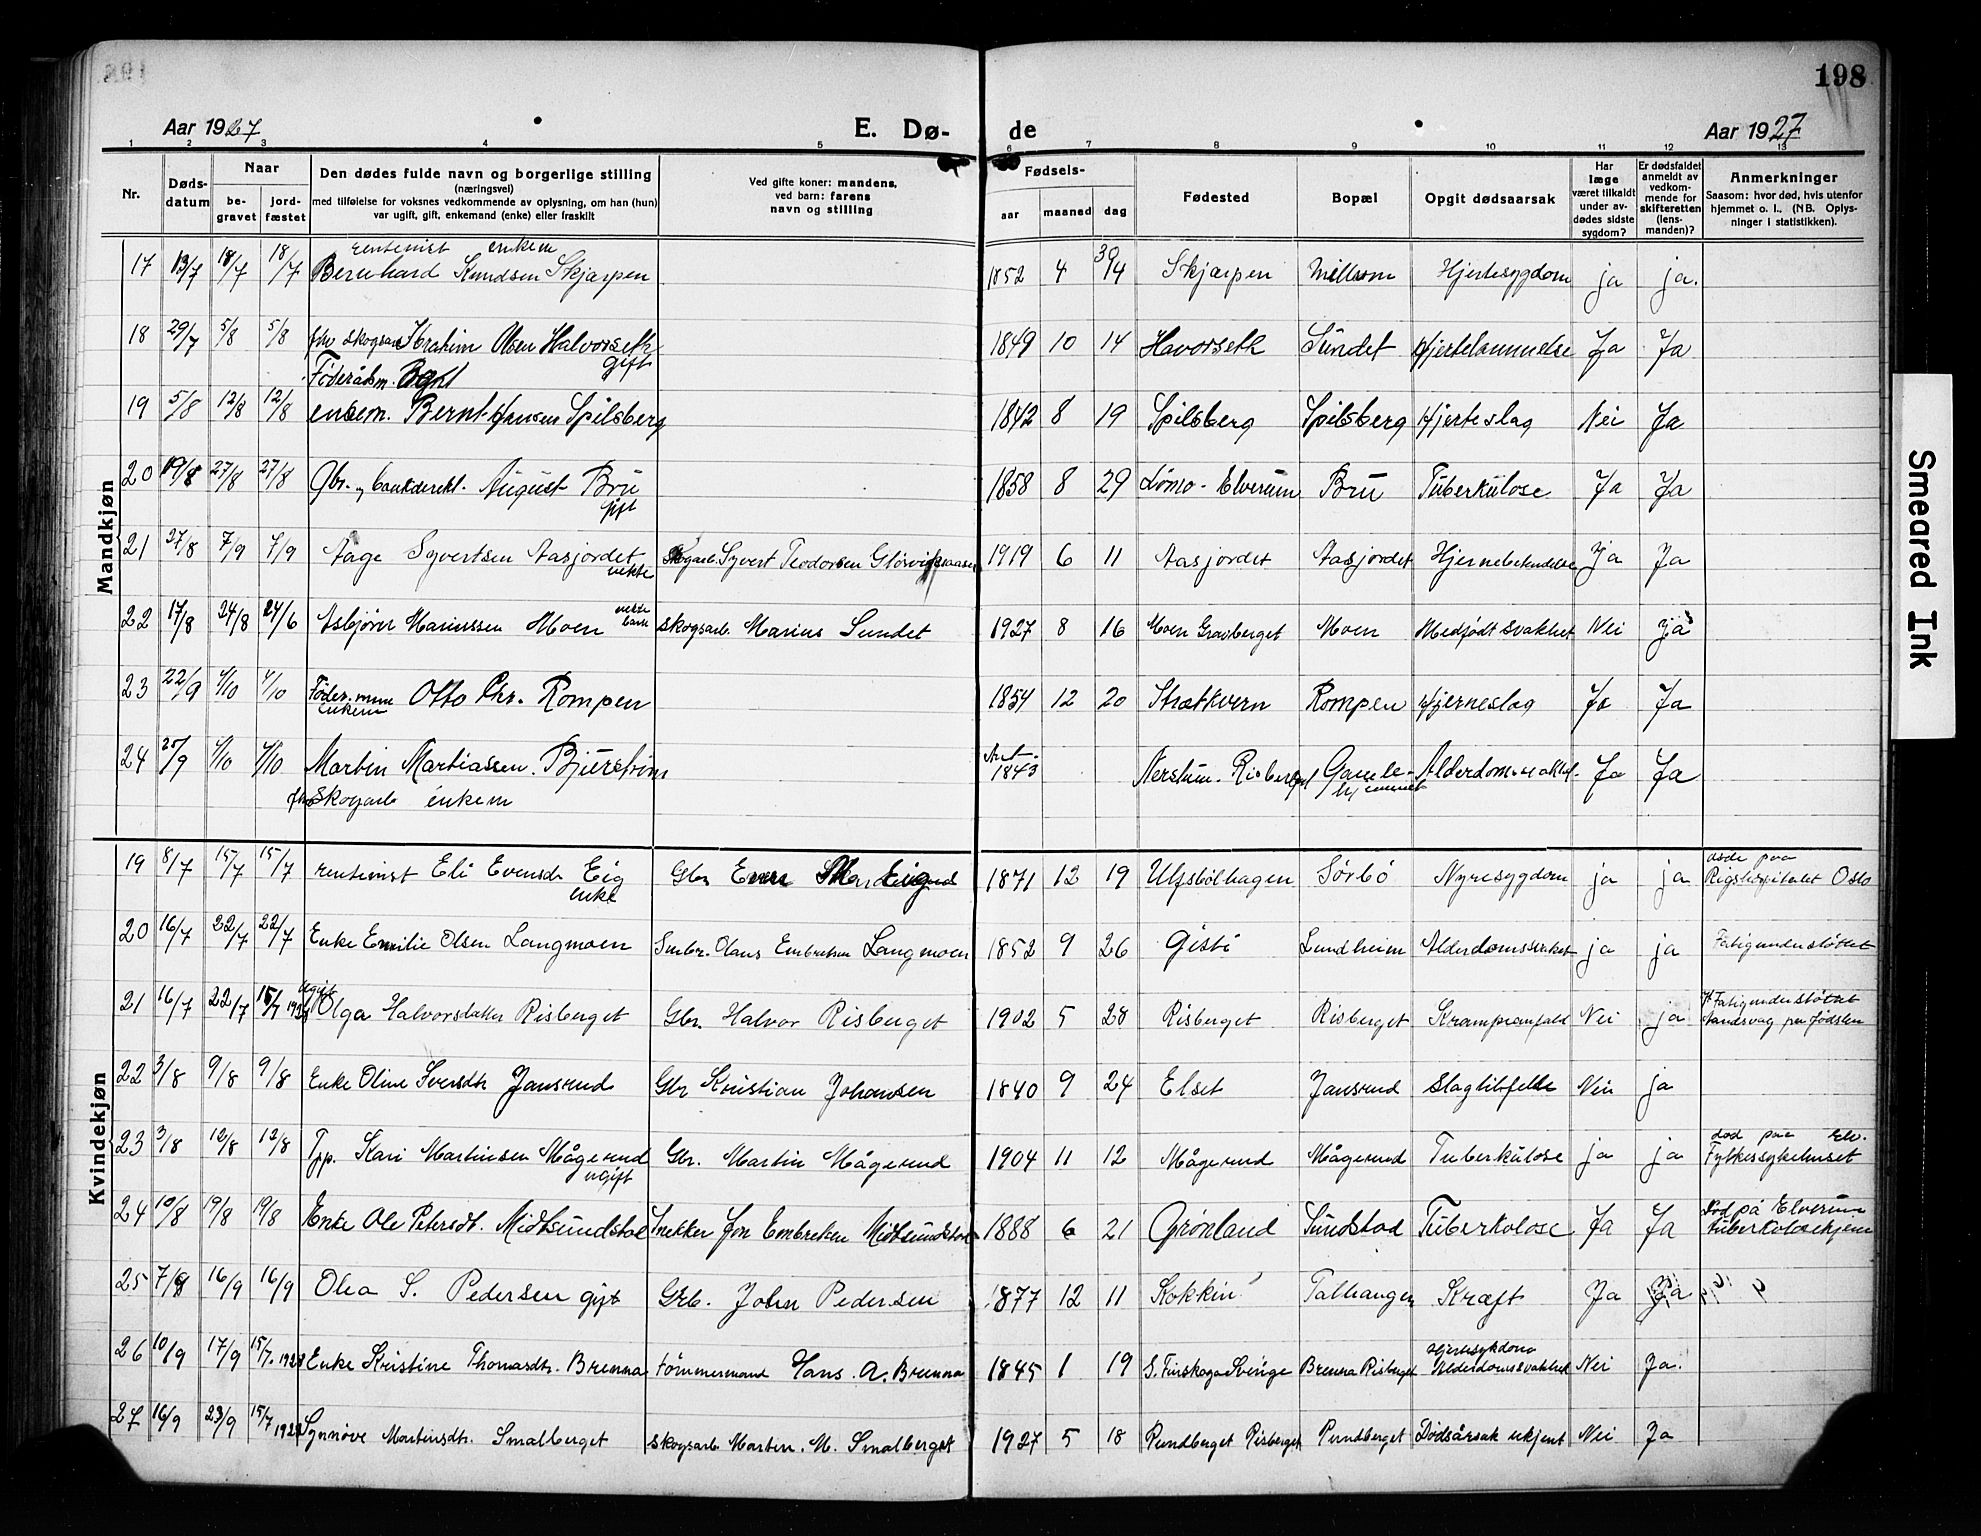 198
Aar 1927
E. Dø-
de
Aar 1927
1 2 3 4 5 6 7 8 9 10 11 12 13
Nr.
Døds-
datum
Naar
be-
gravet
jord-
fæstet
Den dødes fulde navn og borgerlige stilling
(næringsvei)
med tilføielse for voksnes vedkommende av oplysning, om han (hun)
var ugift, gift, enkemand (enke) eller fraskilt
Ved gifte koner: mandens,
ved barn: farens
navn og stilling
Fødsels-
aar
maaned
dag
Fødested
Bopæl
Opgit dødsaarsak
Har
læge
været tilkaldt
under av-
dødes sidste
sygdom?
Er dødsfaldet
anmeldt av
vedkom-
mende for
skifteretten
(lens-
manden)?
Anmerkninger
Saasom: hvor død, hvis utenfor
hjemmet o. l., (NB. Oplys-
ninger i statistikken).
Mandkjøn
rentenist enkem
17 13/7 18/7 18/7 Bernhard Knudsen Skjærpen 1852 4 30 14 Skjærpen Millom Hjertesygdom ja ja.
18 29/7 5/8 5/8 fhv skogsarb Abrahim Olsen Halvorseth 1849 10 14 Havorseth Sundet Hjertelammelse Ja Ja
gift
Føderådsm.
19 5/8 12/8 12/8 enkem. Bernt Hansen Spilsberg 1842 8 19 Spilsberg Spilsberg Hjerteslag Nei Ja
20 19/8 27/8 27/8 Gbr. og bankderekt. August Bru 1858 8 29 Lømo - Elverum Bru Tuberkulose Ja Ja
gift
21 27/8 7/9 7/9 Aage Syvertsen Aasjordet Skogarb. Syvert Teodorsen 1919 6 11 Aasjordet Aasjordet Hjernebetendelse Ja Ja
ekte
22 17/8 24/8 24/6 Asbjørn Mariussen Moen ekte barn skogsarb. Marius Sundet 1927 8 16 Moen Gravberget Moen Medfødt svakhet Nei ja
23 22/9 4/10 4/10 Føder. mann Otto Chr. Rompen 1854 12 20 Strætkvern Rompen Hjerneslag Ja Ja
enkem
24 25/9 4/10 4/10 Martin Martiassen Bjurstrøm Ant 1843 Nerstum. Risberget Gamle- Alderdomsvakhet. Ja Ja
hjemmet
fhv Skogarb enkem
Kvindekjøn
19 8/7 15/7 15/7 rentenist Eli Evensdt Eig Gbr Even Eig 1871 12 19 Ulvsbølhagen Sørbø Nyresygdom ja ja døde paa
enke Rigshospitalet Oslo
20 16/7 22/7 22/7 Enke Emilie Olsen Langmoen Smbr. Olaus Embretsen Langmoen 1852 9 26 Gisti Lundheim Alderdomssvakhet ja ja Fatigunderstøttet
ugift
21 16/7 22/7 15/7 1928 Olga Halvorsdatter Risberget Gbr. Halvor Risberget 1902 5 28 Risberget Risberget Krampeanfald Nei ja Fatigunderstøttet
Aandsvag fra fødslen
22 3/8 9/8 9/8 Enke Oline Iversdtr Jansrud Gbr Kristian Johansen 1840 9 24 Elset Jansrud Slagtilfelle Nei ja
23 3/8 12/8 12/8 Tjp. Kari Martinsen Mågerud Gbr. Martin Mågerud 1904 11 12 Mågerud Mågerud Tuberkulose ja ja død paa Elv.
ugift Fylkessykehuset
24 10/8 19/8 19/8 Enke Ole Petersdt. Midtsundstad Snekker Jon Embretsen Midtsundstad 1888 6 21 Grønland Sundstad Tuberkolose Ja Ja Død på Elverum
tuberkolosehjem
25 7/9 16/9 16/9 Olea S. Pedersen gift Grb. John Pedersen 1877 12 11 Kokkin Talhaugen Kræft Ja Ja
26 10/9 17/9 15/7. 1928 Enke Kristine Thomasdtr. Brenna tømmermand Hans A. Brenna 1845 1 19 S. Finskoga Sverige Brenna Risberget Hjertesykdom Alderdomssvakhet Nei Ja.
27 16/9 23/9 15/7 1928 Synnøve Martinsdtr. Smalberget skogsarb Martin M. Smalberget 1927 5 18 Pundberget Risberget Pundberget Dødsårsak ukjent Nei Ja
Smeared Ink